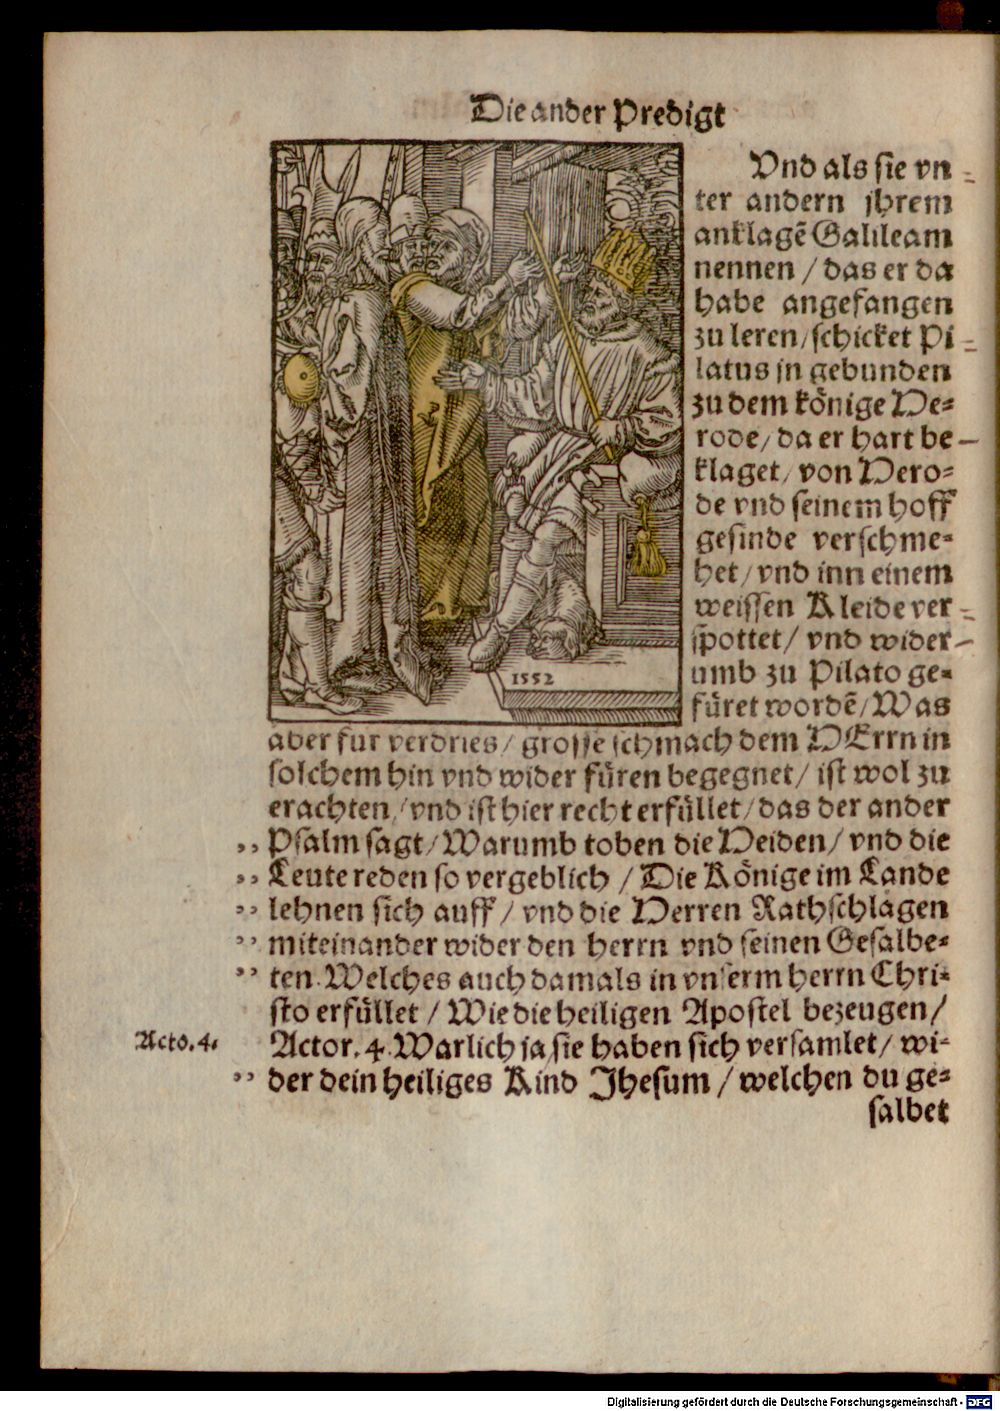 Die ander Predigt
Vnd als sie vn-
ter andern jhrem
anklagẽ Galileam
nennen / das er da
habe angefangen
zu leren/ schicket Pi-
latus jn gebunden
zu dem könige He-
rode/ da er hart be-
klaget/ von Hero-
de vnd seinem hoff
gesinde verschme-
het/ vnd inn einem
weissen Kleide ver-
spottet/ vnd wider-
umb zu Pilato ge-
füret wordẽ/ Was
aber fur verdries/ grosse schmach dem HErrn in
solchem hin vnd wider füren begegnet/ ist wol zu
erachten/ vnd ist hier recht erfüllet/ das der ander
,, Psalm sagt/ Warumb toben die Heiden/ vnd die
,, Leute reden so vergeblich / Die Könige im Lande
,, lehnen sich auff/ vnd die Herren Rathschlagen
,, miteinander wider den herrn vnd seinen Gesalbe-
,, ten. Welches auch damals in vnserm herrn Chri-
sto erfüllet / Wie die heiligen Apostel bezeugen/
Acto. 4. Actor. 4. Warlich ja sie haben sich versamlet/ wi-
,, der dein heiliges Kind Jhesum / welchen du ge-
salbet
1552
Digitalisierung gefördert durch die Deutsche Forschungsgemeinschaft - DFG